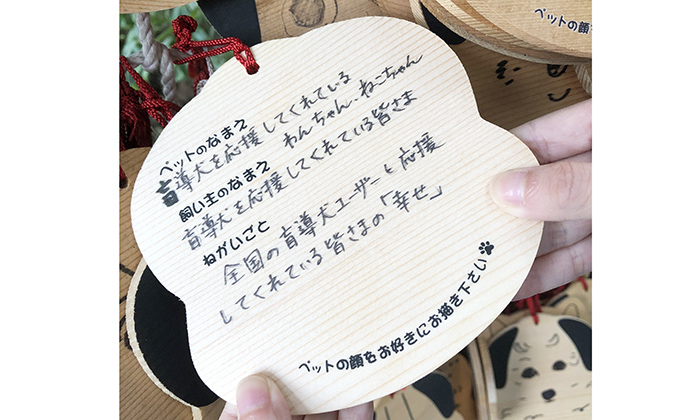 ペットのなまえ
盲導犬を応援してくれている
わんちゃん、ねこちゃん
飼い主のなまえ
盲導犬を応援してくれている皆さま
ねがいごと
全国の盲導犬ユーザーと応援
してくれている皆さまの「幸せ」
ペットの顔をお好きにお描き下さい
ペットの顔